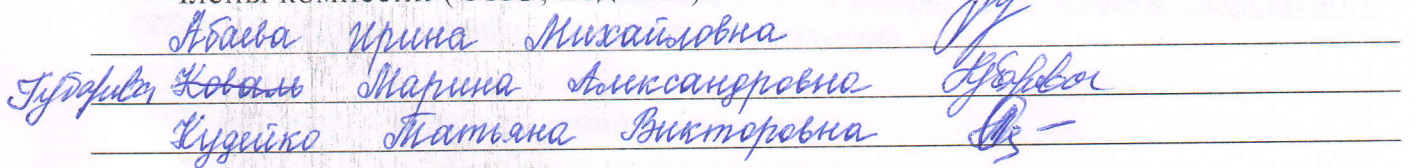 Члены комиссии (
Абаева Ирина Михайловна
Губарева Коваль Марина Александровна Губарева
Кудейко Татьяна Викторовна